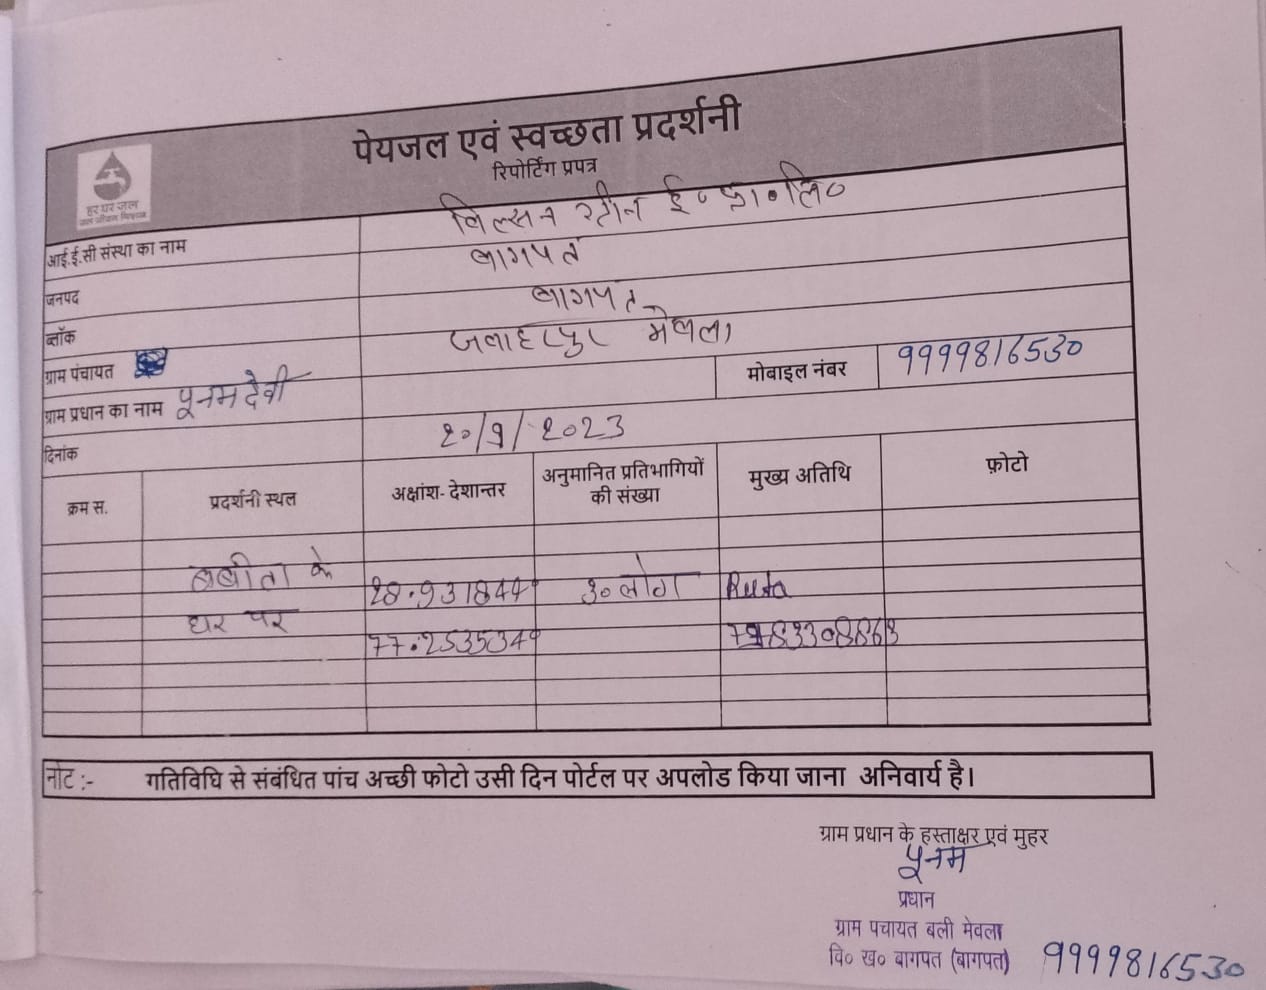 पेयजल एवं स्वच्छता प्रदर्शनी
रिपोर्टिंग प्रपत्र
हर घर जल
जल जीवन मिशन
आई.ई.सी संस्था का नाम विल्सन स्टीन ई० प्रा० लि०
जनपद बागपत
ब्लॉक बागपत
ग्राम पंचायत जवाहरपुर मेवला
ग्राम प्रधान का नाम पूनम देवी मोबाइल नंबर 9999816530
दिनांक 20/9/2023
क्रम स. प्रदर्शनी स्थल अक्षांश- देशान्तर अनुमानित प्रतिभागियों की संख्या मुख्य अतिथि फ़ोटो
बबीता के 28.931844° 30 लोग
घर पर 77.253534°
नोट :- गतिविधि से संबंधित पांच अच्छी फोटो उसी दिन पोर्टल पर अपलोड किया जाना अनिवार्य है।
ग्राम प्रधान के हस्ताक्षर एवं मुहर
पूनम
प्रधान
ग्राम पचायत बली मेवला
वि० ख० बागपत (बागपत) 9999816530